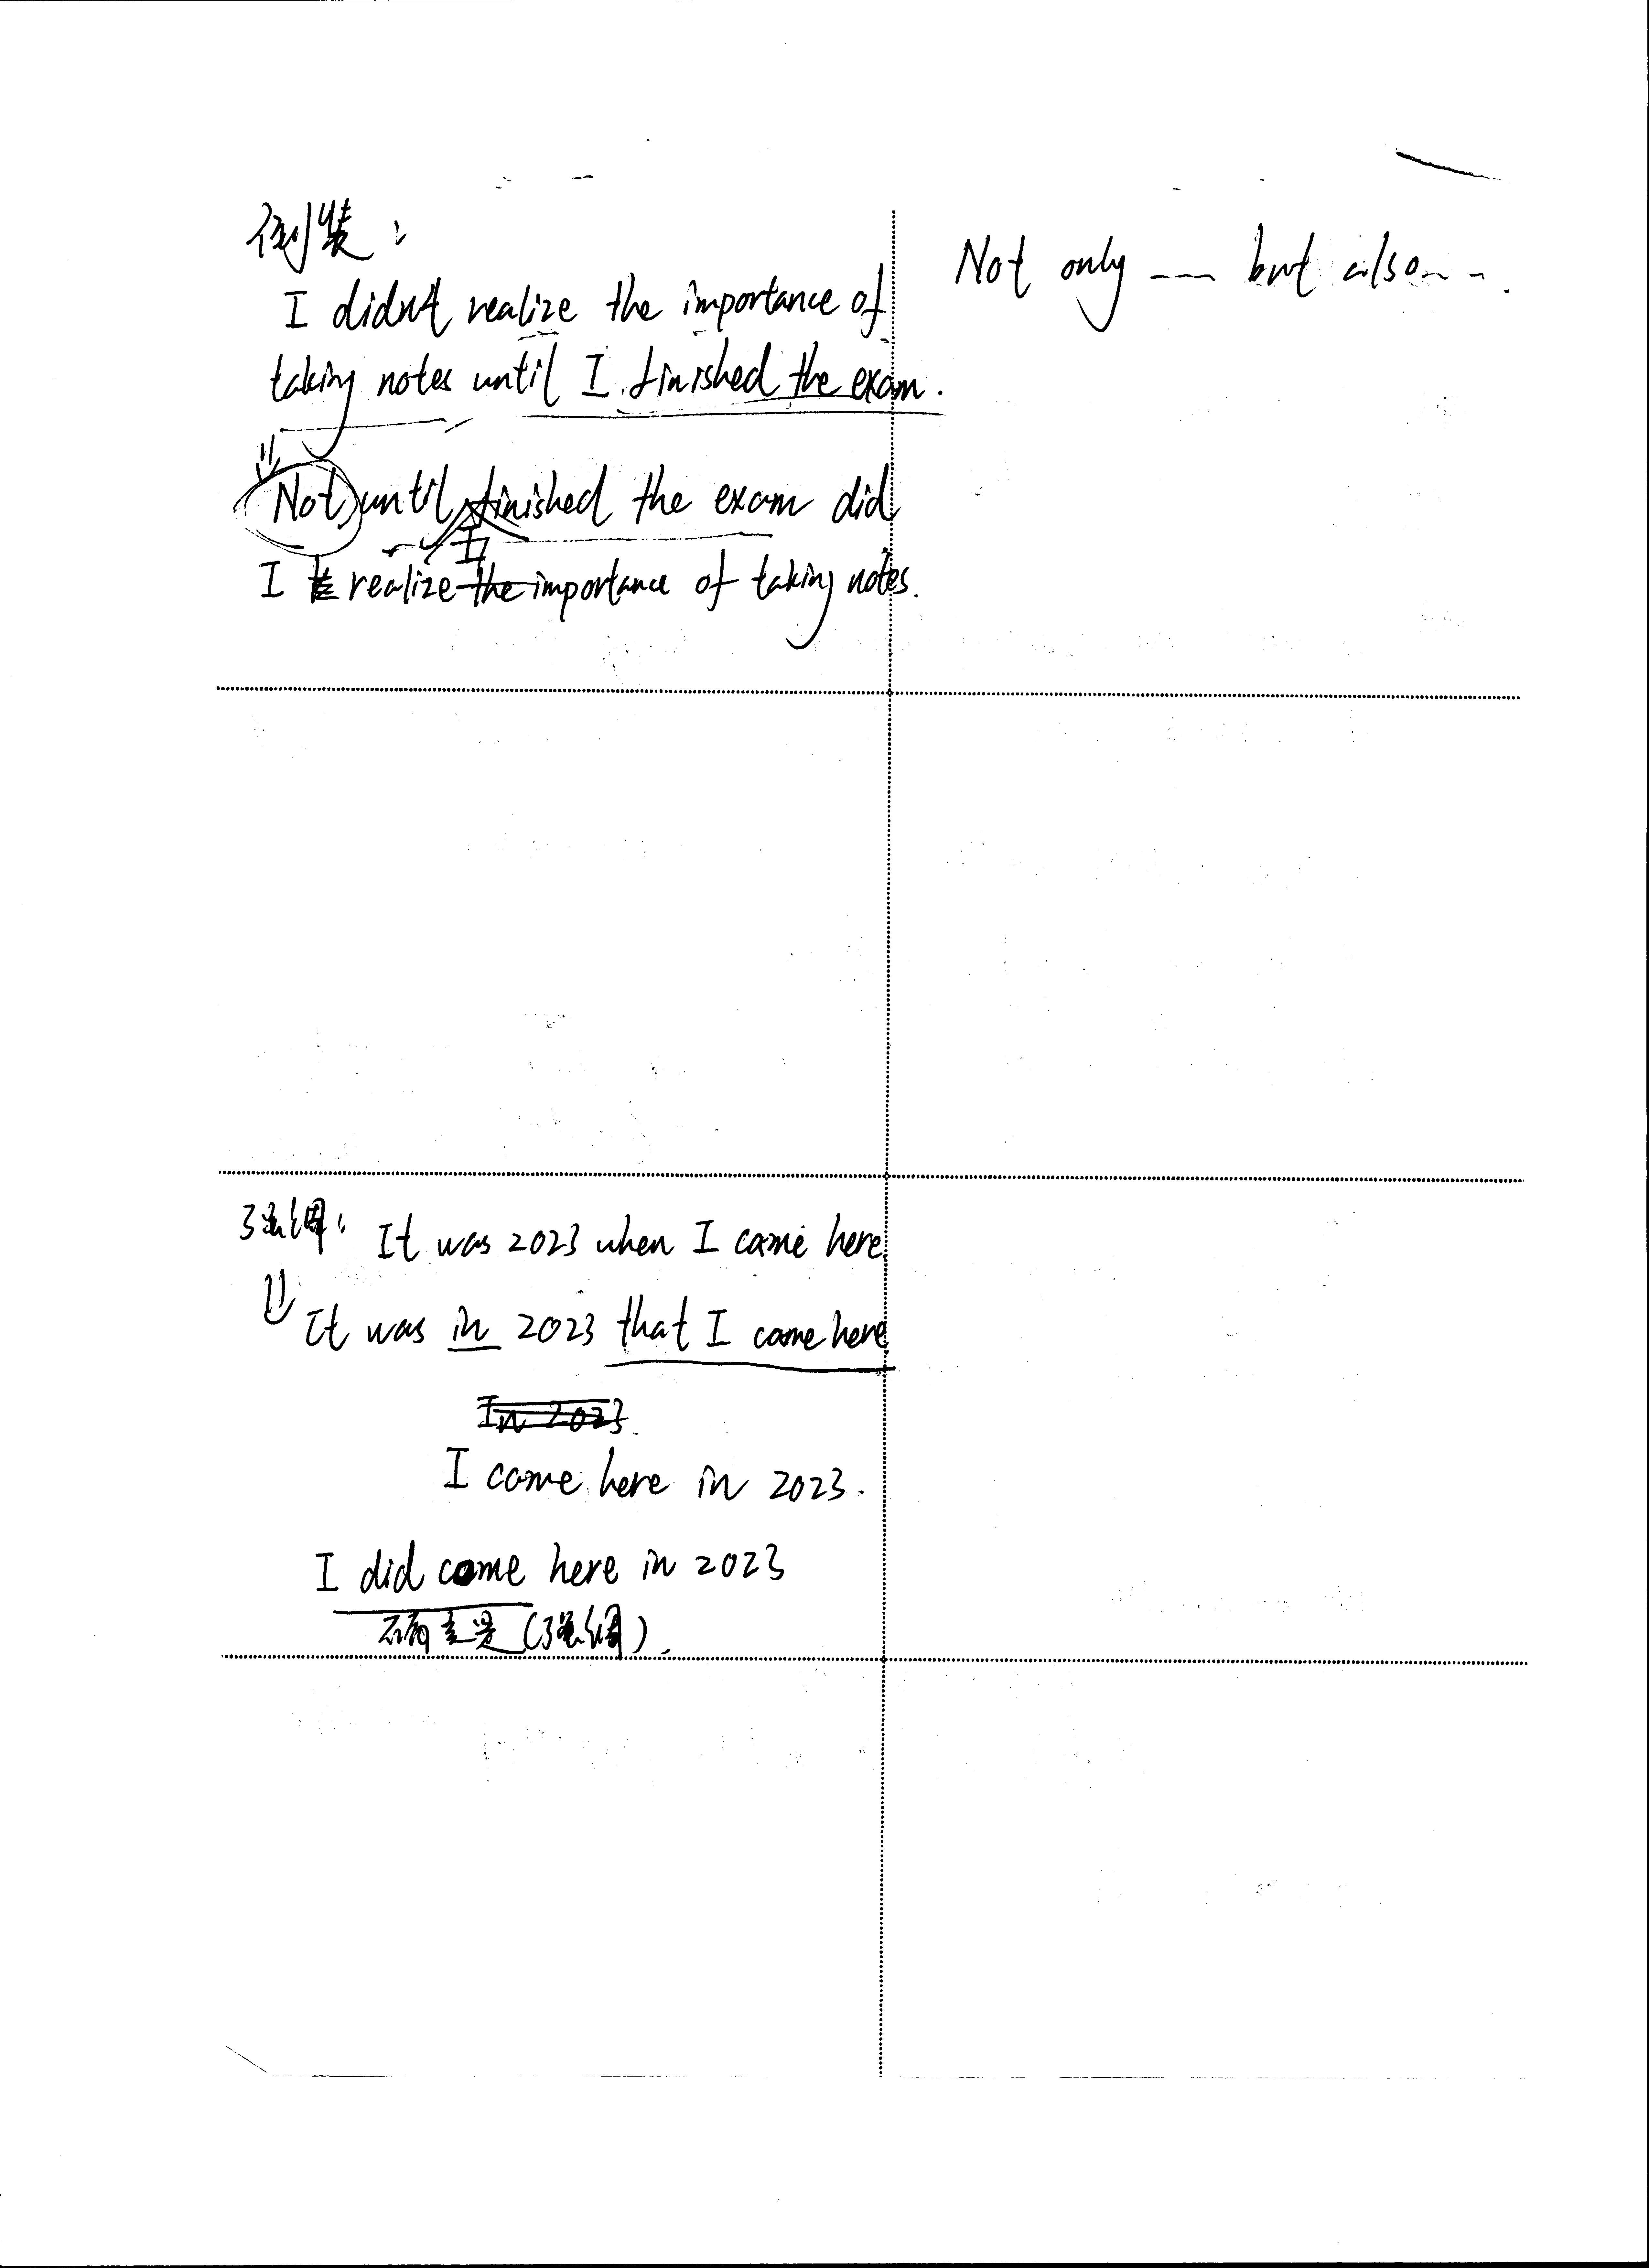 倒装：
I didn't realize the importance of
taking notes until I finished the exam.
Not only --- but also -- -.
Not until I finished the exam did
I realize the importance of taking notes.
强调： It was 2023 when I came here.
It was in 2023 that I came here.
In 2023.
I came here in 2023.
I did come here in 2023
确实是（强调）.